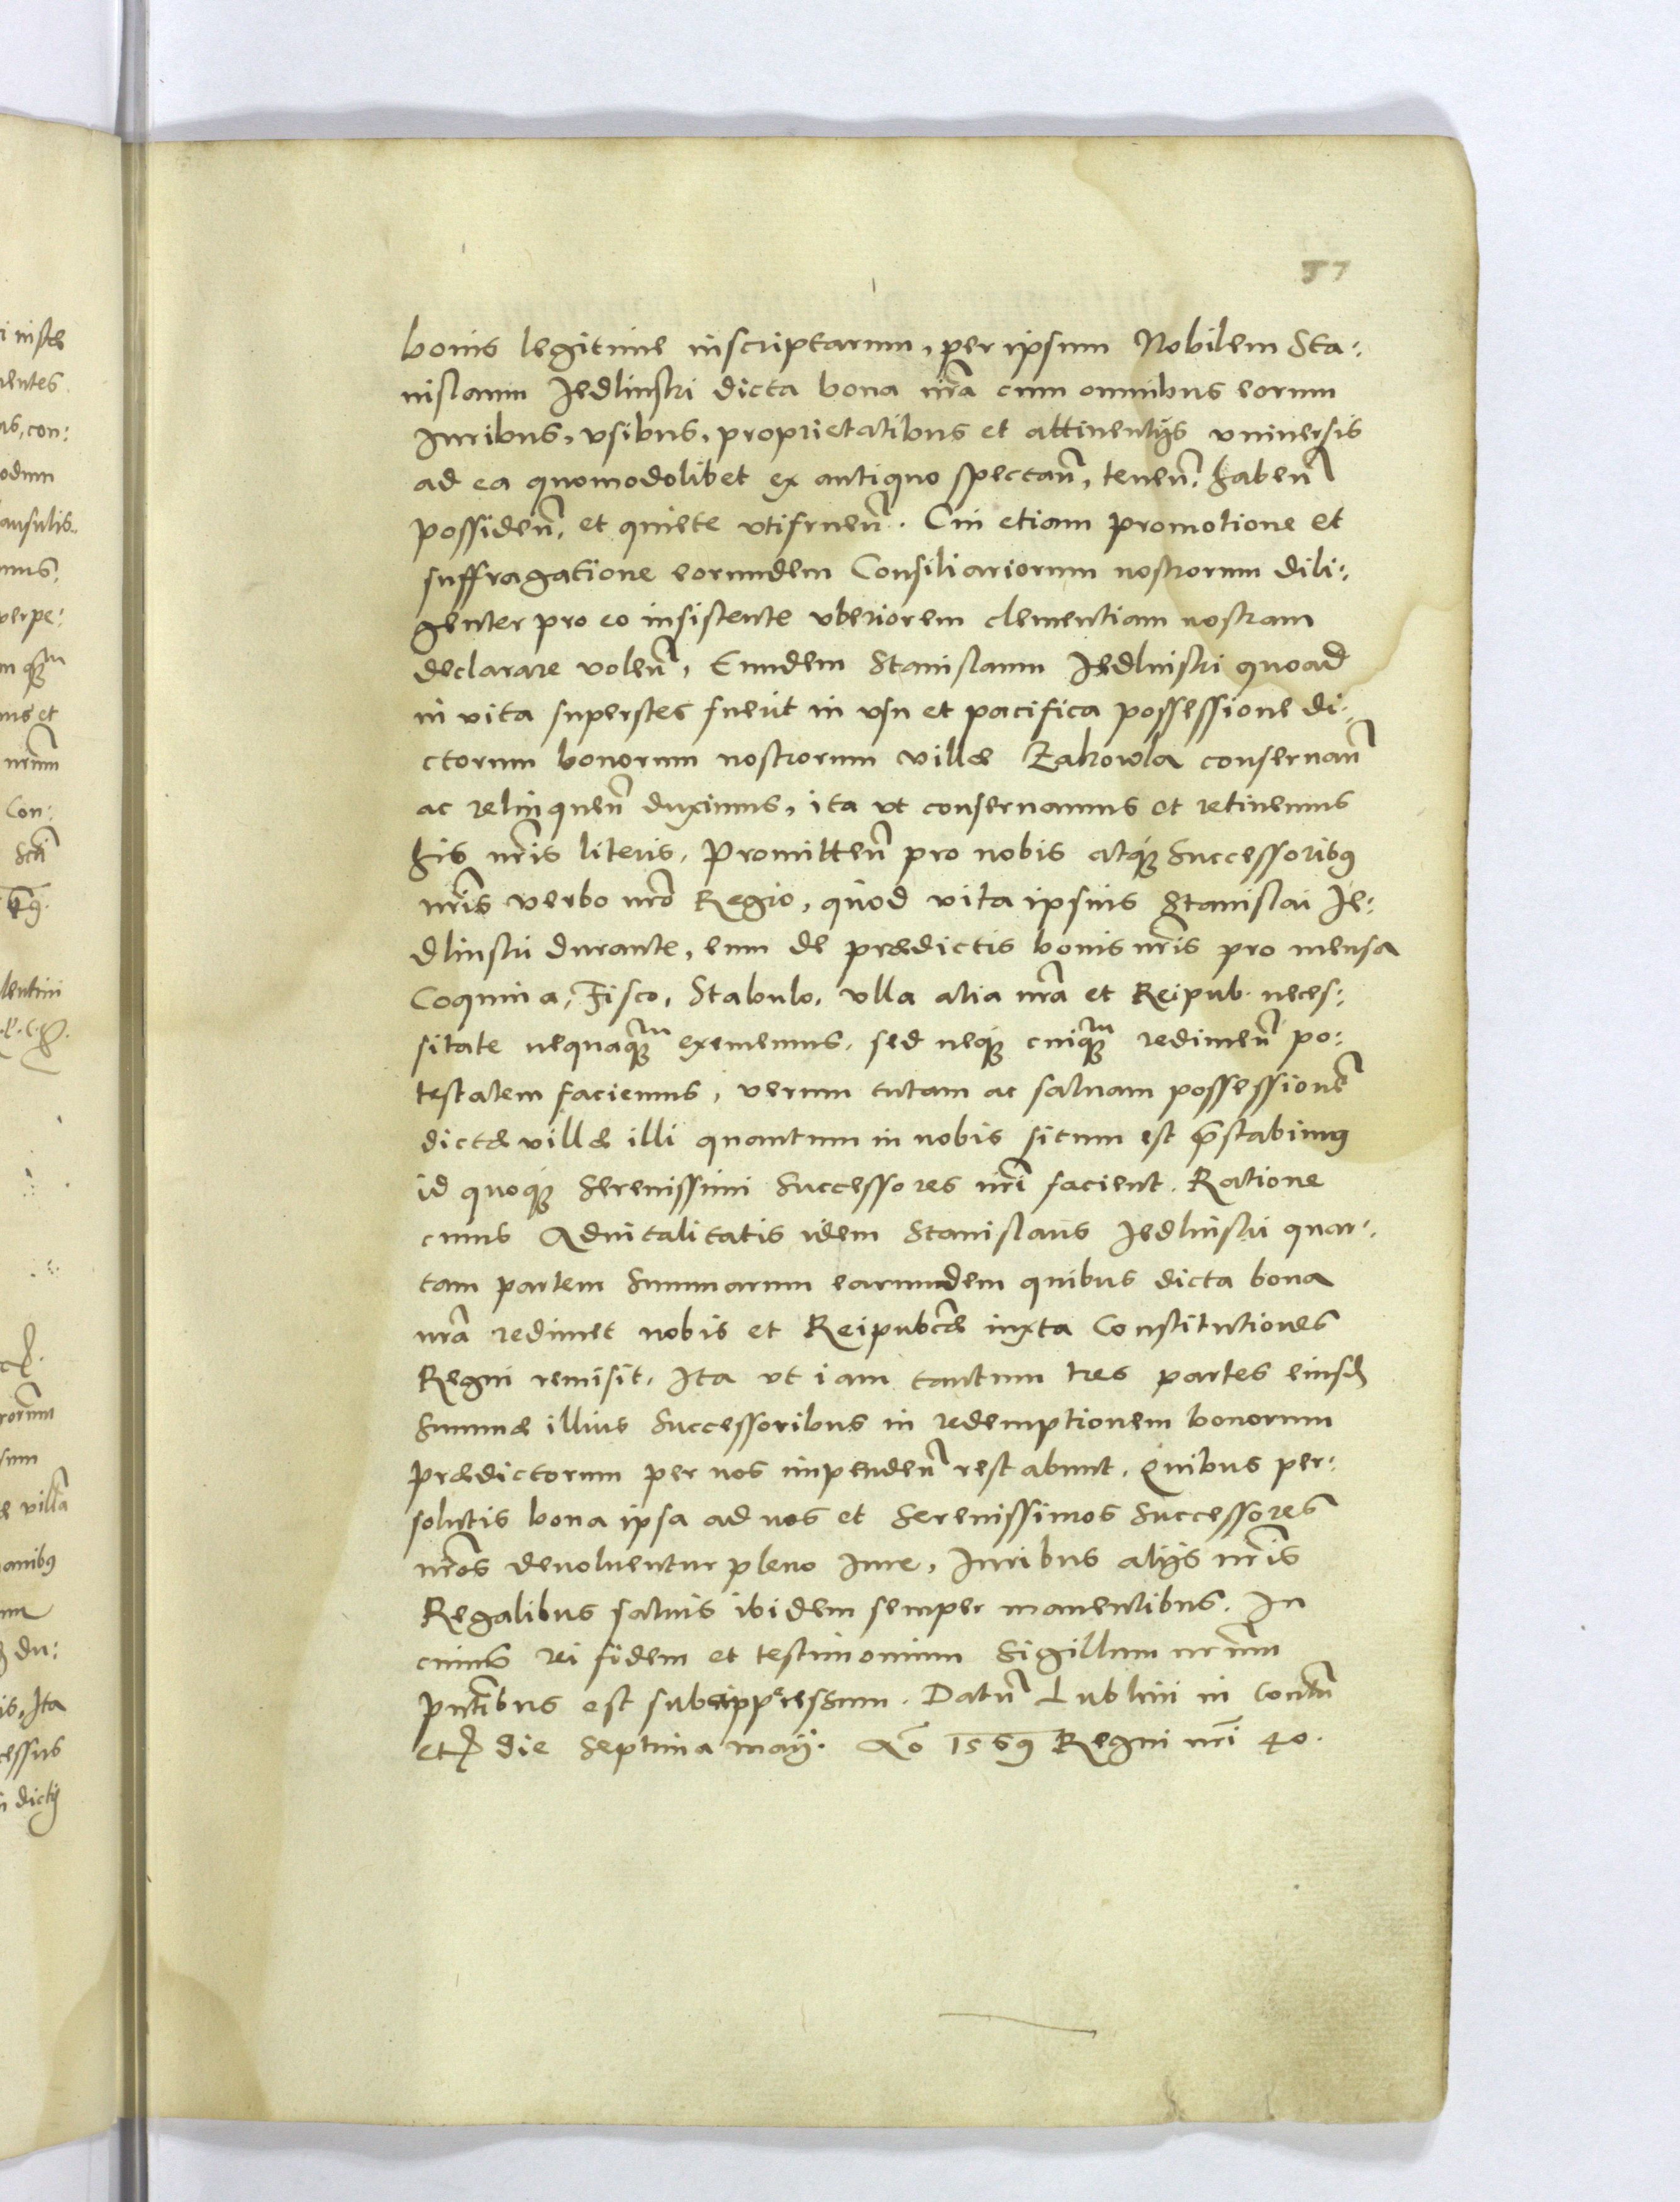 57
bonis legitime inscriptarum, per ipsum Nobilem Sta:
nislaum Jedlinski dicta bona nrā cum omnibus eorum
Juribus, vsibus, proprietatibus et attinentijs vniuersis
ad ea quomodolibet ex antiquo spectan̄, tenen̄, haben̄
possiden̄, et quiete vtifruen̄. Cui etiam promotione et
suffragatione eorundem Consiliariorum nostrorum dili:
genter pro eo insistente vberiorem clementiam nostram
declarare volen̄, Eundem Stanislaum Jedlinski quoad
in vita superstes fuerit in vsu et pacifica possessione di:
ctorum bonorum nostrorum villæ Zakowla conseruan̄
ac relinquen̄ duximus, ita vt conseruamus et retinemus
his nr̄is literis. Promitten̄ pro nobis atq́ Successoribꝰ
nr̄is verbo nr̄o Regio, quod vita ipsius Stanislai Je:
dlinski durante, eum de prædictis bonis nr̄is pro mensa
Coquina, Fisco, Stabulo, vlla alia nrā et Reipub. neces:
sitate nequaq̃m eximemus, sed neq́ cuiq̃m redimen̄ po:
testatem faciemus, verum tutam ac saluam possessionē
dictæ villæ illi quantum in nobis situm est p̄stabimꝰ
id quoq́ Serenissimi Successores nr̄i facient. Ratione
cuius Aduitalitatis idem Stanislaus Jedlinski quar:
tam partem Summarum earundem quibus dicta bona
nrā redimet nobis et Reipubcæ iuxta Constitutiones
Regni remisit. Ita vt iam tantum tres partes eiusd
Summæ illius Successoribus in redemptionem bonorum
prædictorum per nos impenden̄ restabunt. Quibus per:
solutis bona ipsa ad nos et Serenissimos Successores
nr̄os deuoluentur pleno Jure, Juribus alijs nr̄is
Regalibus saluis ibidem semper manentibus. In
cuius rei fidem et testimonium Sigillum nr̄um
pn̄tibus est subappressum. Datū Lublini in Conūtu
etc die Septima maij. Ao 1569 Regni nr̄i 40.